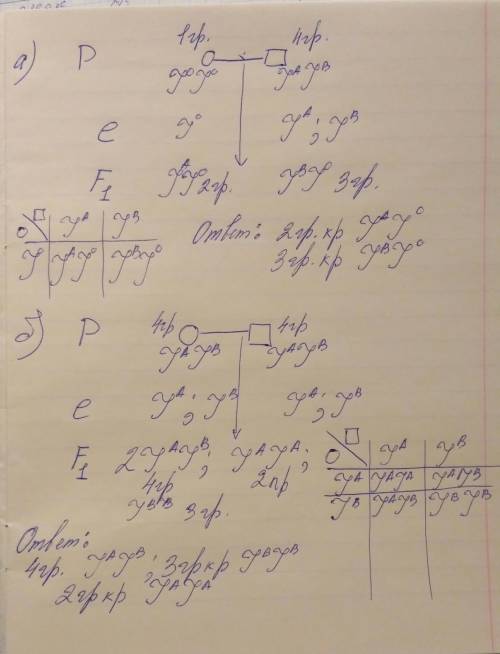 1гр. 4гр.
а) P
JᴼJᴼ JᴬJᴮ
e Jᴼ Jᴬ; Jᴮ
F₁ JᴬJᴼ 2гр. JᴮJᴼ 3гр.
Jᴬ Jᴮ
J JᴬJᴼ JᴮJᴼ
Ответ: 2гр. кр JᴬJᴼ
3гр. кр JᴮJᴼ
4гр 4гр
б) P
JᴬJᴮ JᴬJᴮ
e Jᴬ; Jᴮ Jᴬ; Jᴮ
F₁ 2JᴬJᴮ; JᴬJᴬ;
4гр 2гр
JᴮJᴮ 3гр.
Jᴬ Jᴮ
Jᴬ JᴬJᴬ JᴬJᴮ
Jᴮ JᴬJᴮ JᴮJᴮ
Ответ:
4гр. JᴬJᴮ; 3гр кр JᴮJᴮ
2гр кр JᴬJᴬ